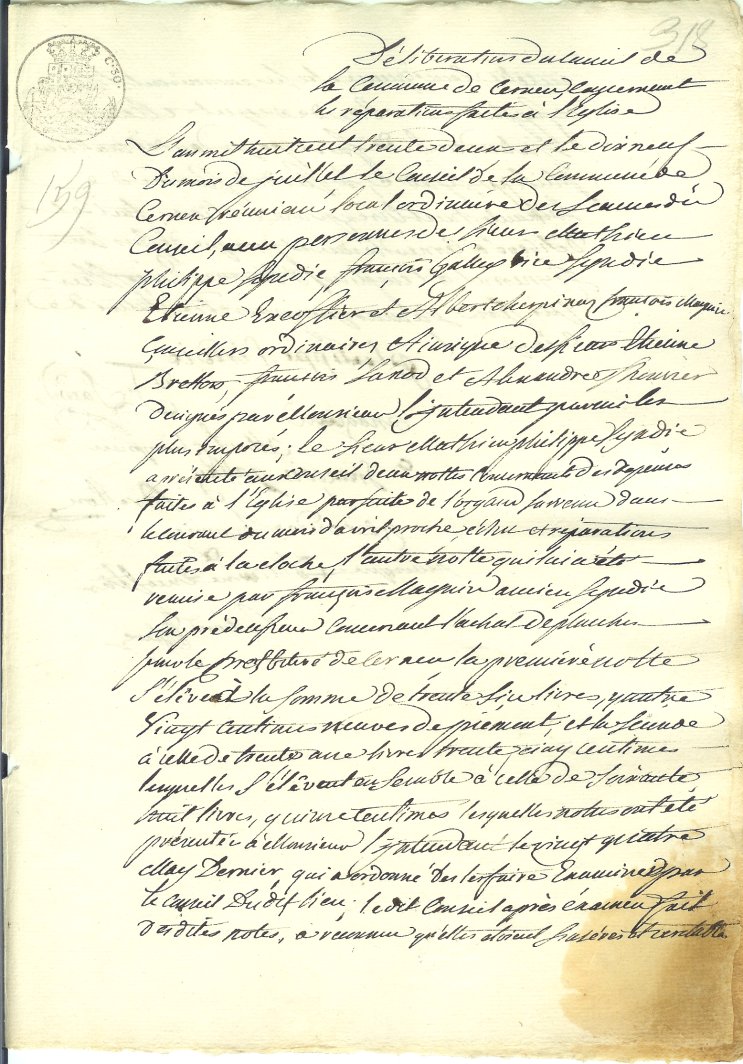 318
C. 50.
Délibération du Conseil de
la Commune de Cernex Concernant
les réparations faites à l'Eglise
159
L'an mil huit cent trente deux et le dix neuf
Du mois de juillet le Conseil de la Commune de
Cernex réuni au local ordinaire des Seances du
Conseil, aux personnes des sieurs Mathieu
philippe Syndic, françois Gallay vice Syndic
Etienne Excoffier et Albert françois Magnin
Conseillers ordinaires Ainsique des sieurs Etienne
françois et Alexandre
Designés par Monsieur l'Intendant parmi les
plus imposés; le sieur Mathieu philippe Syndic
a présenté aux Conseil deux nottes Concernants des depenses
faites à l'Eglise par suite de l'organd survenu dans
le courant du mois d'avril proche échu et réparations
faites à la cloche, l'autre notte qui lui a été
remise par françois Magnin ancien Syndic
Son prédécesseur concernant l'achat de planches
pour le presbitère de Cernex la première notte
S'élève à la somme de trente six livres, quatre
Vingt centimes neuves de piémont, et la seconde
à celle de trente une livres trente cinq centimes
lesquelles S'élèvent ensemble à celle de soixante
huit livres, quinze centimes lesquelles nottes ont été
présentée à Monsieur l'Intendant le vingt quatre
May Dernier, qui a ordonné de les faire Examiner par
le Conseil Dudit lieu; le dit Conseil après éxamen fait
Desdites notes, a reconnu qu'elles étoient sincères et veritable